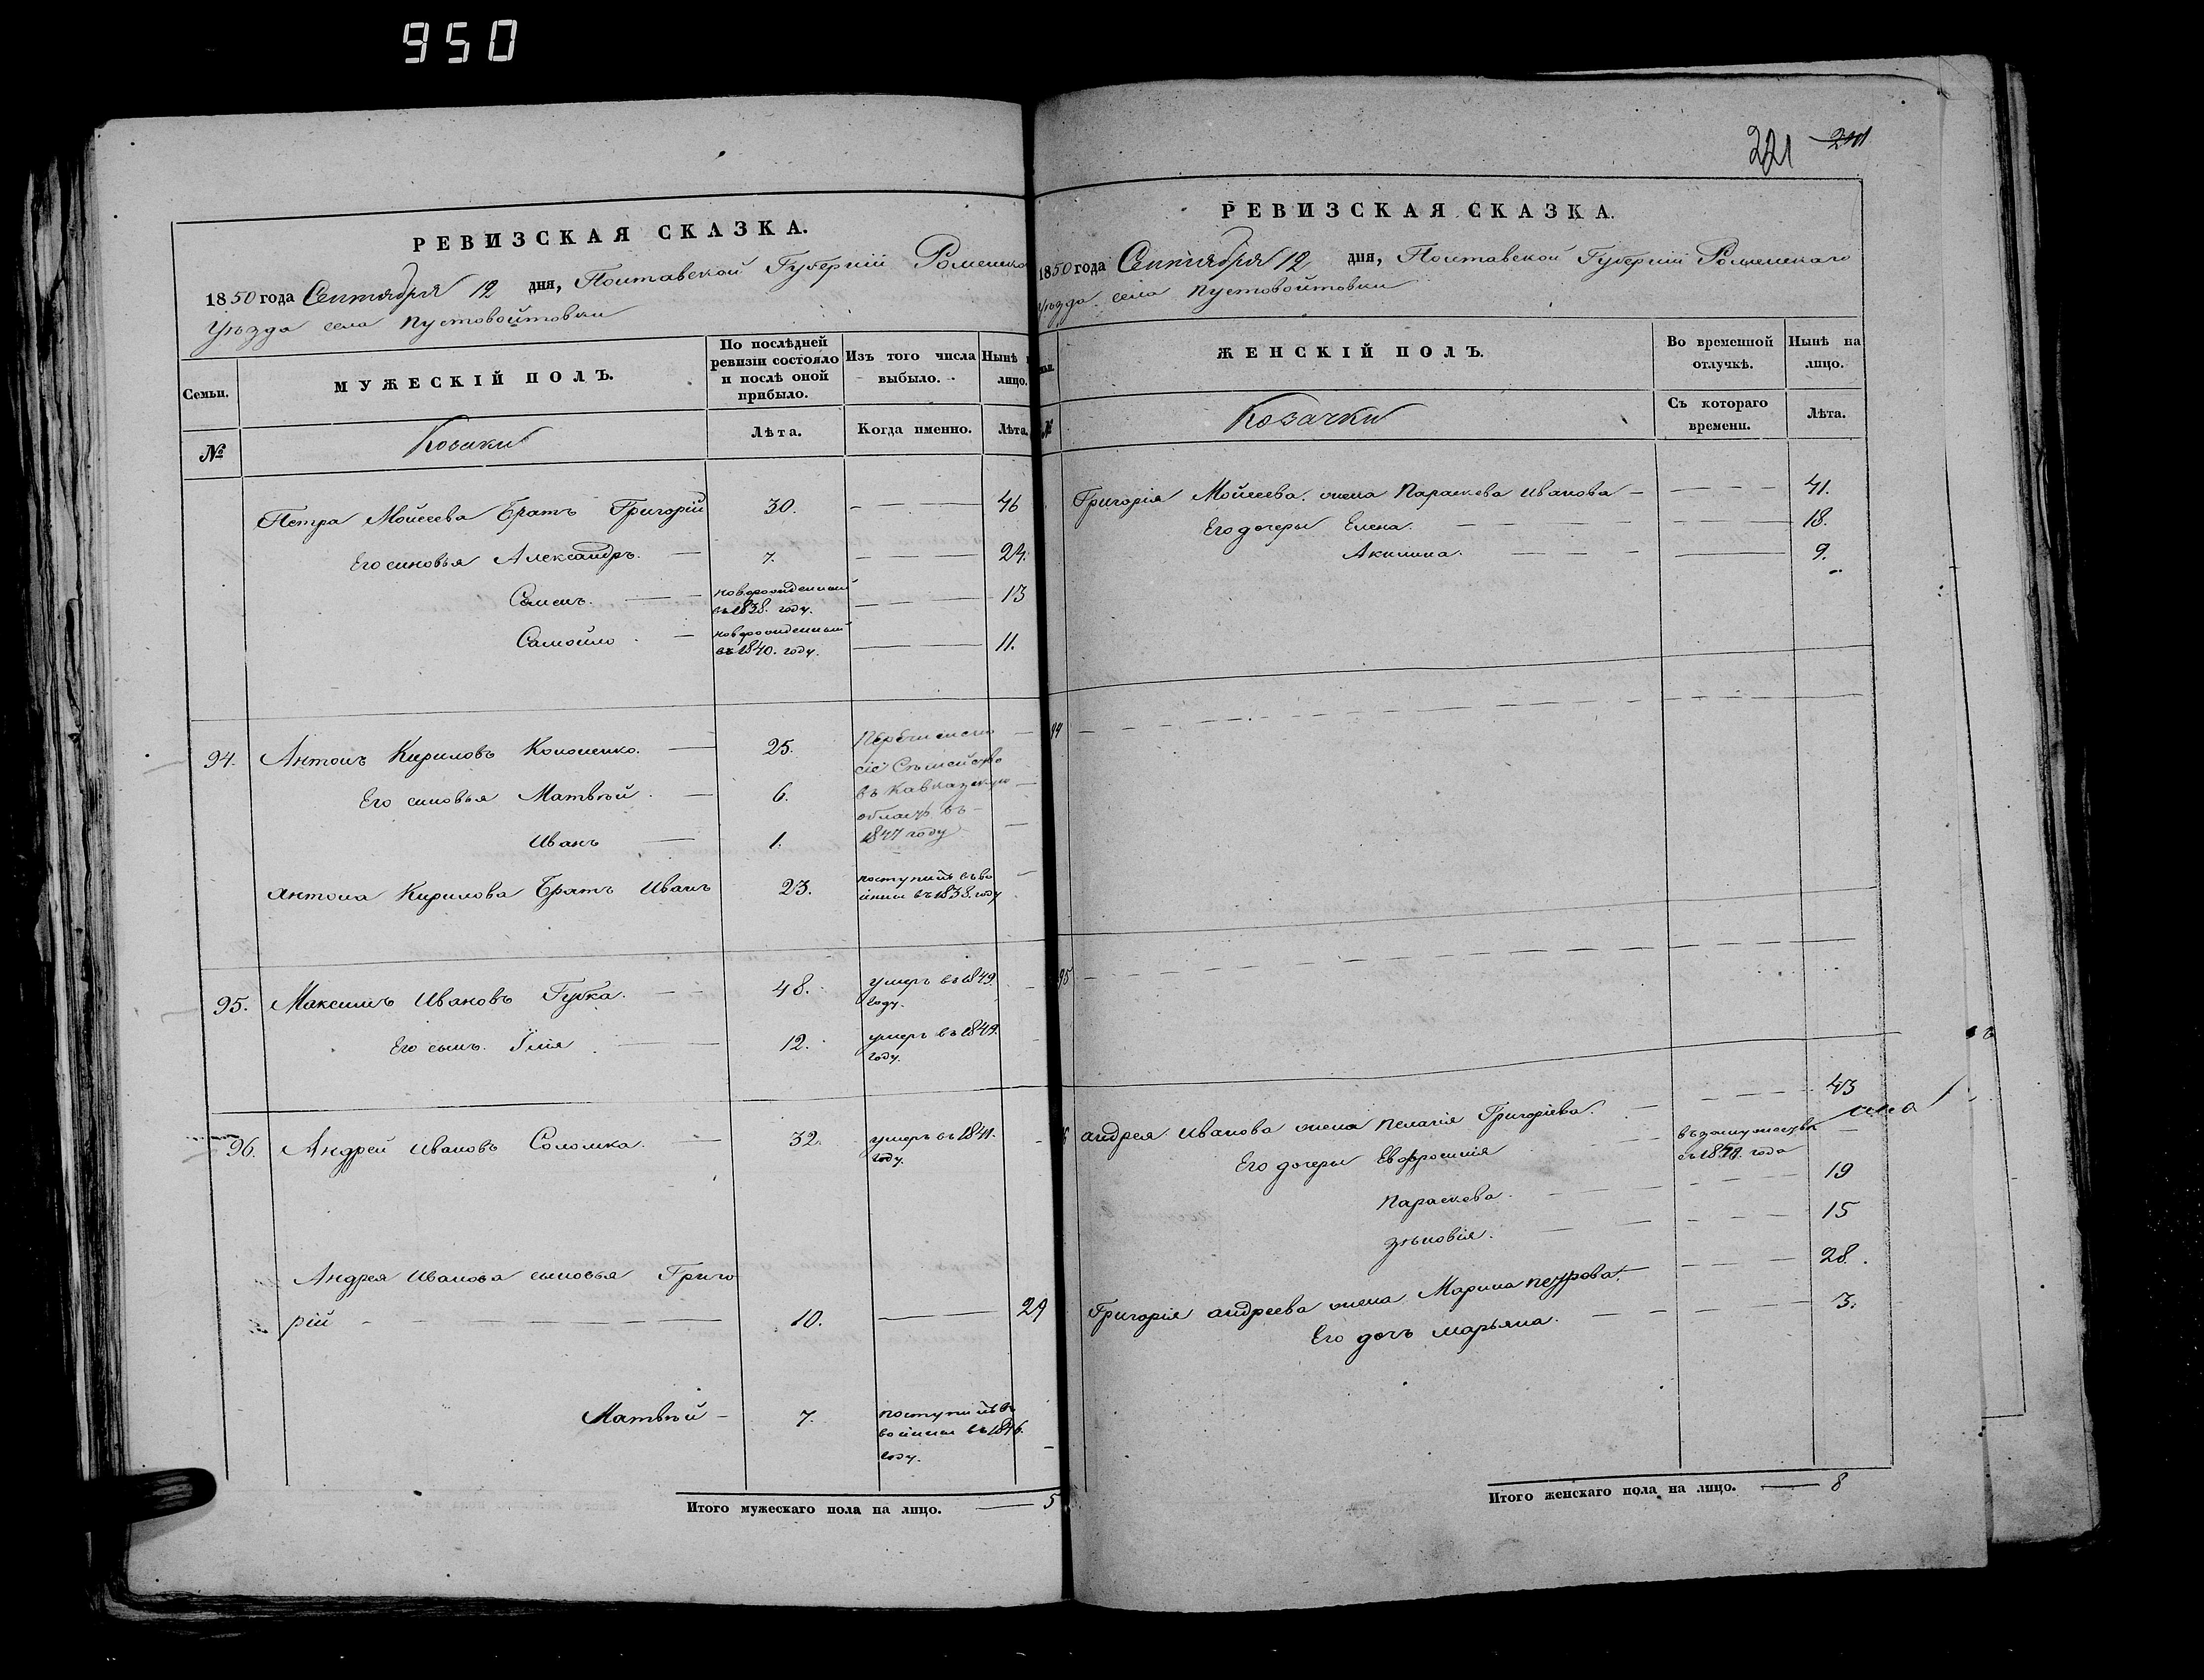 950
РЕВИЗСКАЯ СКАЗКА.
1850 года Сентября 12 дня, Полтавской Губерніи Роменско
Уѣзда села Пустовойтовки
Семьи.
МУЖЕСКІЙ ПОЛЪ.
По послѣдней ревизіи состояло и послѣ оной прибыло.
Изъ того числа выбыло.
Нынѣ
лицо.
№
Козаки
Лѣта.
Когда именно.
Лѣта.
Петра Мойсеева Братъ Григорій 30. 46
Его синовья Александръ. 7. 24.
Семенъ. новорожденный въ 1838. году. 13
Самойло. новорожденный въ 1840. году. 11.
94. Антонъ Кириловъ Кононенко. 25.
Его синовья Матвѣй. 6.
Иванъ 1.
въ Кавказскую
область въ
1847 году
Антона Кирилова Братъ Иванъ 23. въ 1838. году
95. Максимъ Ивановъ Губка. 48. умеръ въ 1849. году.
Его сынъ. Илія 12. умеръ въ 1849. году.
96. Андрей Ивановъ Соломка. 32. умеръ въ 1841. году.
Андрея Иванова сыновья Григо
рій 10. 29
Матвѣй 7. въ 1846. году.
Итого мужескаго пола на лицо. 5
221 211
РЕВИЗСКАЯ СКАЗКА.
1850 года Сентября 12 дня, Полтавской Губерніи Роменскаго
Уѣзда села Пустовойтовки
ЖЕНСКІЙ ПОЛЪ.
Во временной отлучкѣ.
Нынѣ на лицо.
№
Козачки
Съ котораго времени.
Лѣта.
Григорія Мойсеева. жена Параскева Иванова 41.
Его дочеры Елена. 18.
Акилина. 9.
94
95
96 Андрея Иванова жена Пелагія Григоріева. 43
Его дочеры Евфросинія въ замужествѣ
Параскева. 19
Зѣновія. 15
Григорія Андреева жена Марина Петрова. 28.
Его дочъ Марьяна. 3.
Итого женскаго пола на лицо. 8